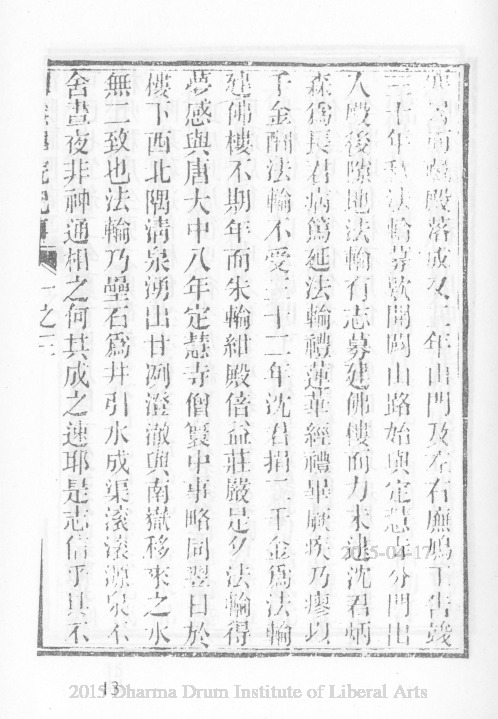 殿落成又二年山門及左右廡鳩工告竣
二十年秋法輪募款開闢山路始與定慧寺分門出
入殿後隙地法輪有志募建佛樓而力未逮沈君炳
森爲長君病篤延法輪禮蓮華經禮畢厥疾乃瘳以
千金酬法輪不受三十二年沈君捐二千金爲法輪
建佛樓不期年而朱輪紺殿倍益莊嚴是夕法輪得
夢感與唐大中八年定慧寺僧寰中事略同翌日於
樓下西北隅清泉湧出甘冽澄澈與南嶽移來之水
無二致也法輪乃壘石爲井引水成渠滾滾源泉不
舍晝夜非神通相之何其成之速耶是志信乎具不
一之二
2015-04-17
13
2015 Dharma Drum Institute of Liberal Arts